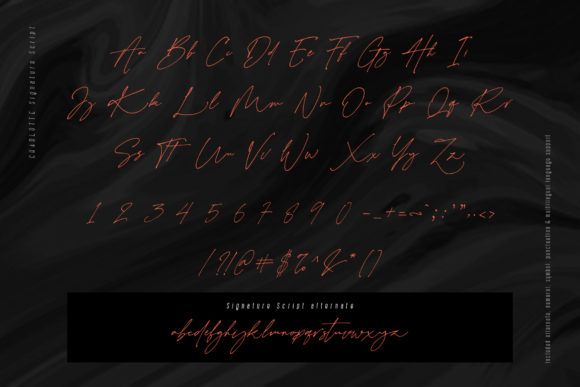 CHARLOTTE Signature Script
Aa Bb Cc Dd Ee Ff Gg Hh Ii
Jj Kk Ll Mm Nn Oo Pp Qq Rr
Ss Tt Uu Vv Ww Xx Yy Zz
1 2 3 4 5 6 7 8 9 0 - _ + = ~ ^ ; : ' " , . < >
/ ! ? @ # $ % ^ & * ( )
Signature Script alternate
abcdefghijklmnopqrstuvwxyz
included alternate, numeral, symbol, punctuation & multilingual language support